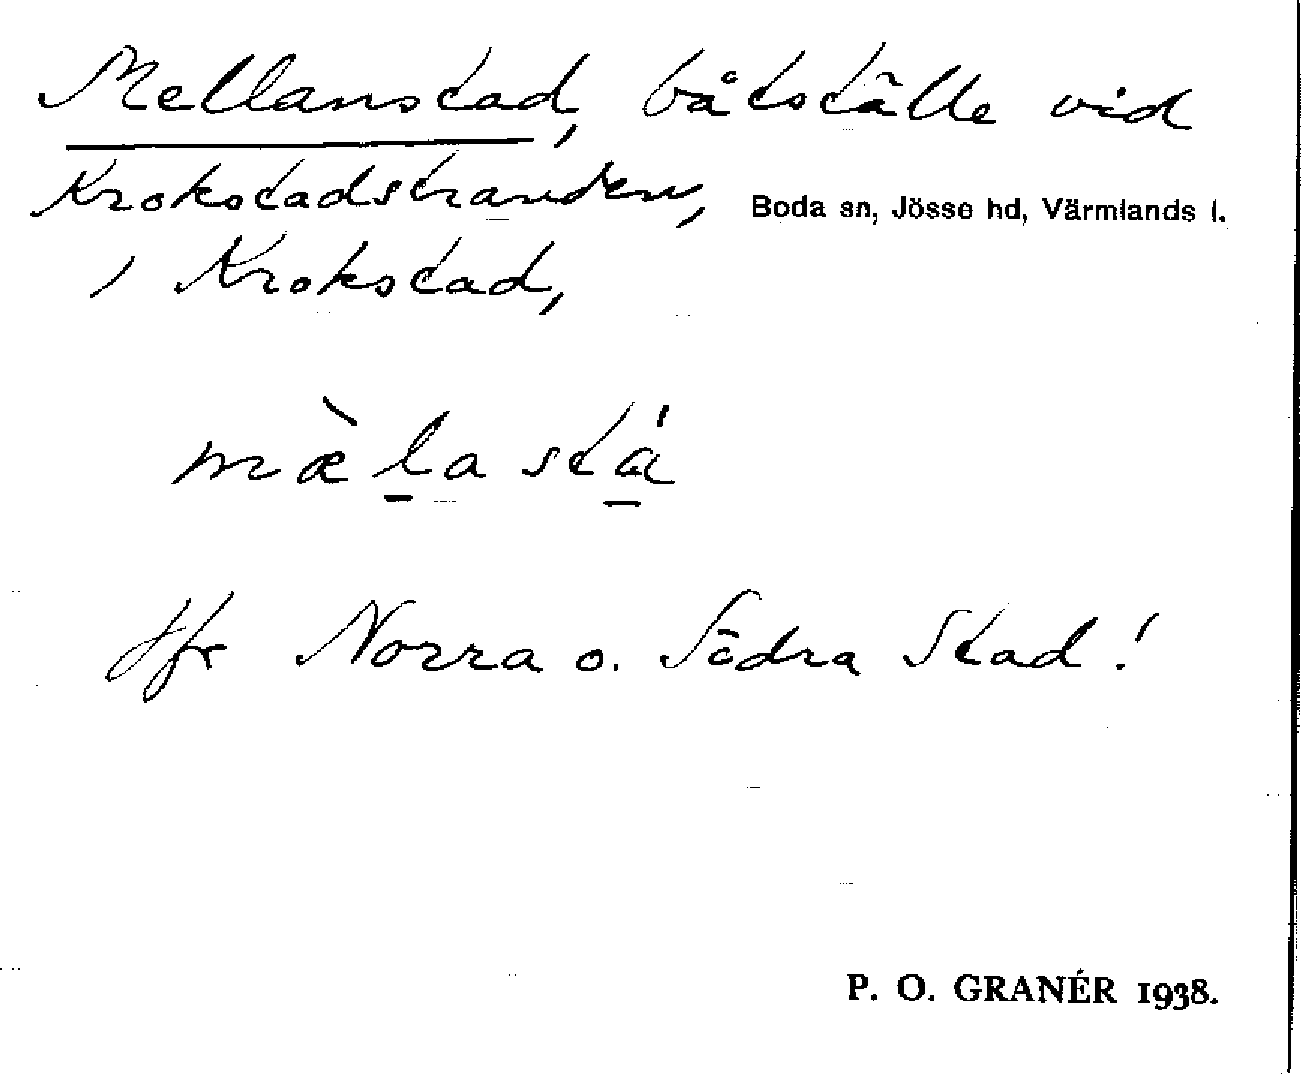 Mellanstad, båtställe vid
Krokstadstranden, Boda sn, Jösse hd, Värmlands l.
i Krokstad,
mæ̀l̠a stá̠
Jfr Norra o. Södra Stad!
P. O. GRANÉR 1938.